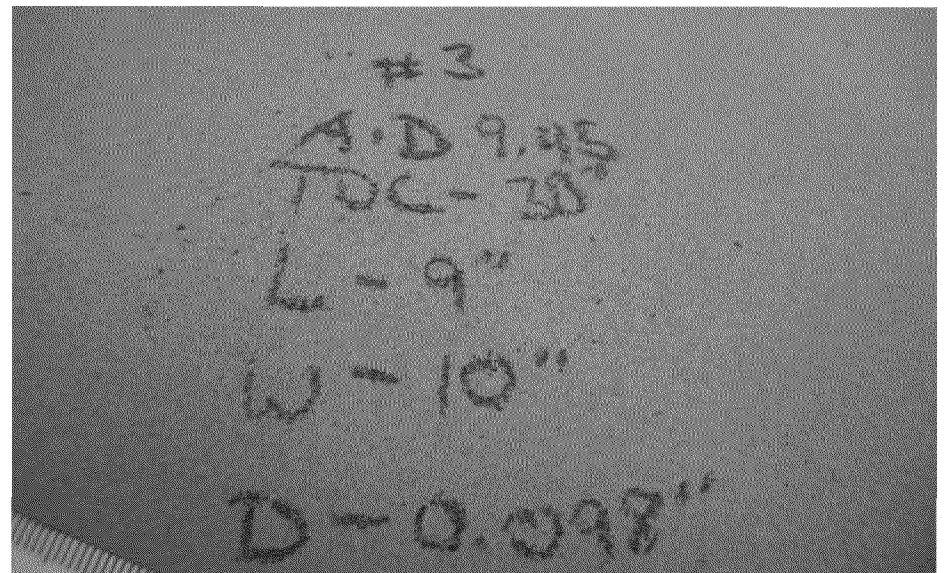 #3
A.D 9.45
TDC - 38"
L - 9"
W - 10"
D - 0.098"